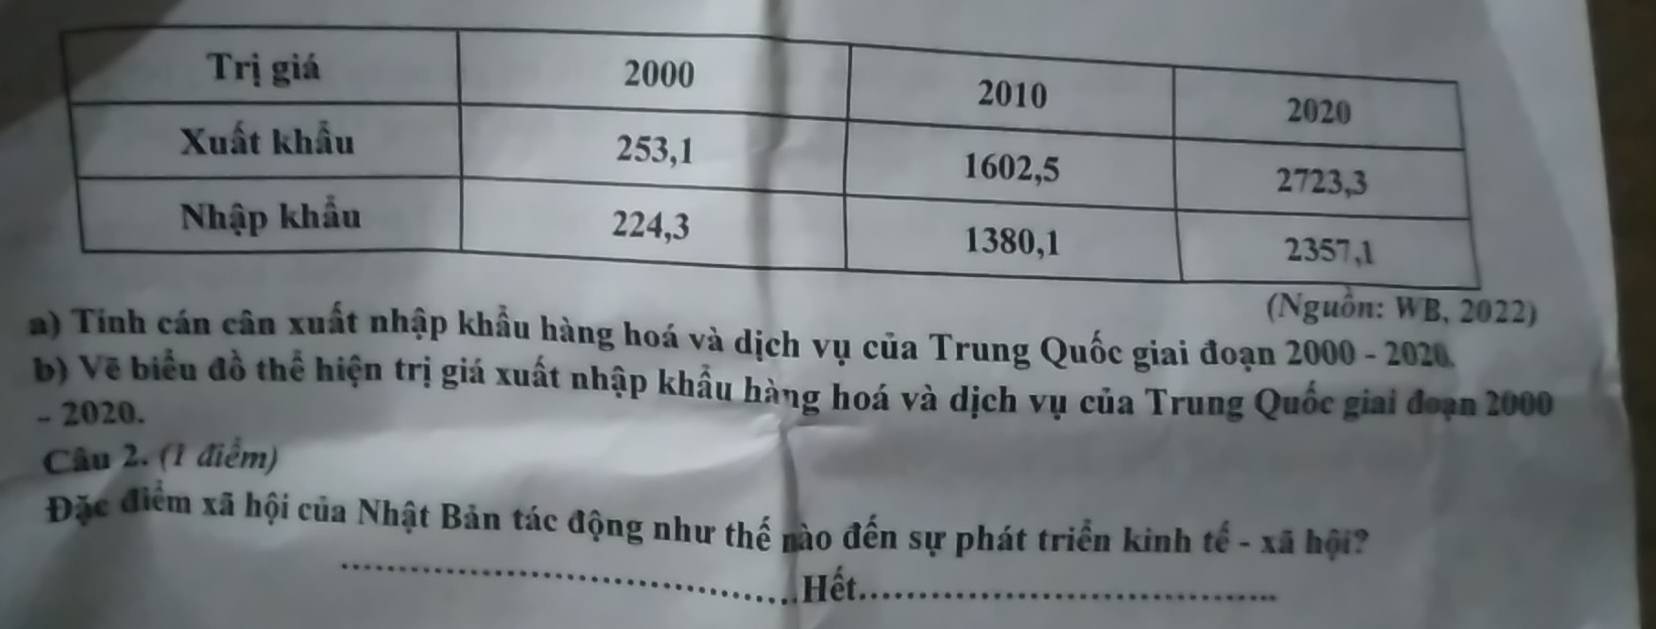 Trị giá 2000 2010 2020
Xuất khẩu 253,1 1602,5 2723,3
Nhập khẩu 224,3 1380,1 2357,1
(Nguồn: WB, 2022)
a) Tính cán cân xuất nhập khẩu hàng hoá và dịch vụ của Trung Quốc giai đoạn 2000 - 2020.
b) Vẽ biểu đồ thể hiện trị giá xuất nhập khẩu hàng hoá và dịch vụ của Trung Quốc giai đoạn 2000
- 2020.
Câu 2. (1 điểm)
Đặc điểm xã hội của Nhật Bản tác động như thế nào đến sự phát triển kinh tế - xã hội?
Hết